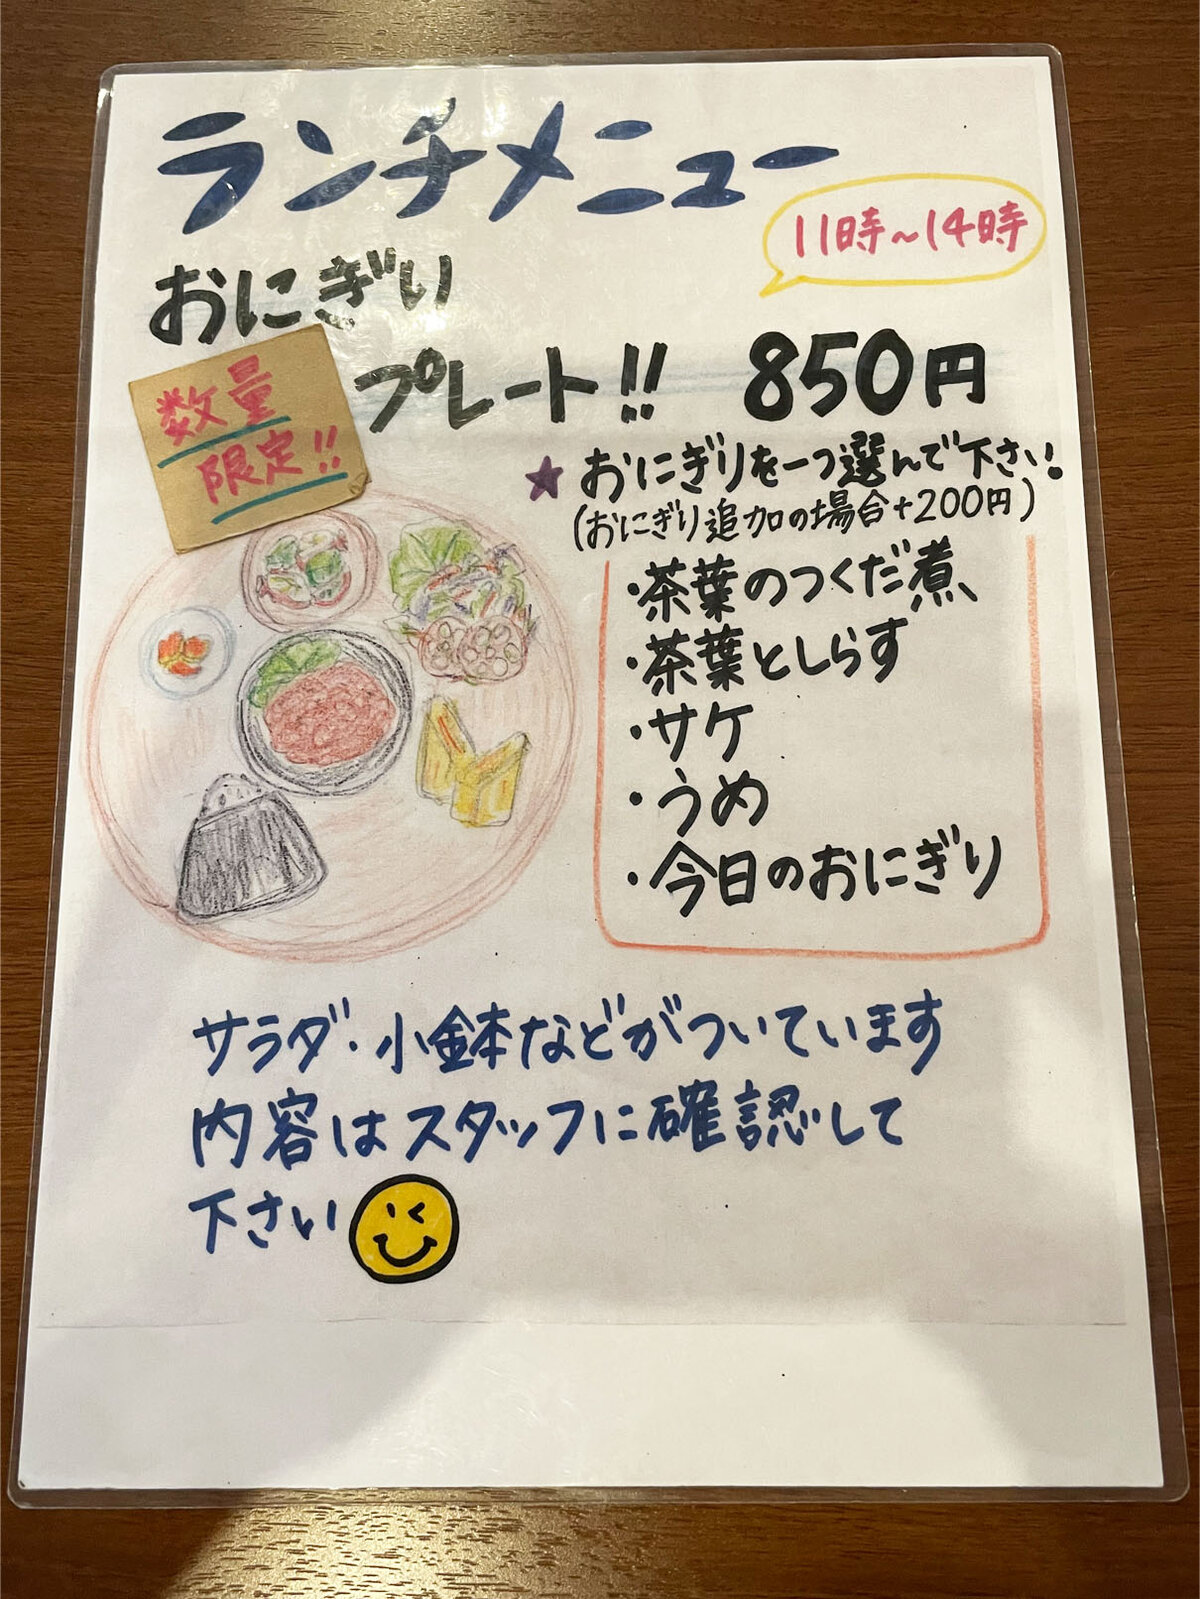 ランチメニュー
11時~14時
おにぎり
プレート!! 850円
数量
限定!!
★おにぎりを一つ選んで下さい。
(おにぎり追加の場合+200円)
・茶葉のつくだ煮、
・茶葉としらす
・サケ
・うめ
・今日のおにぎり
サラダ・小鉢などがついています
内容はスタッフに確認して
下さい